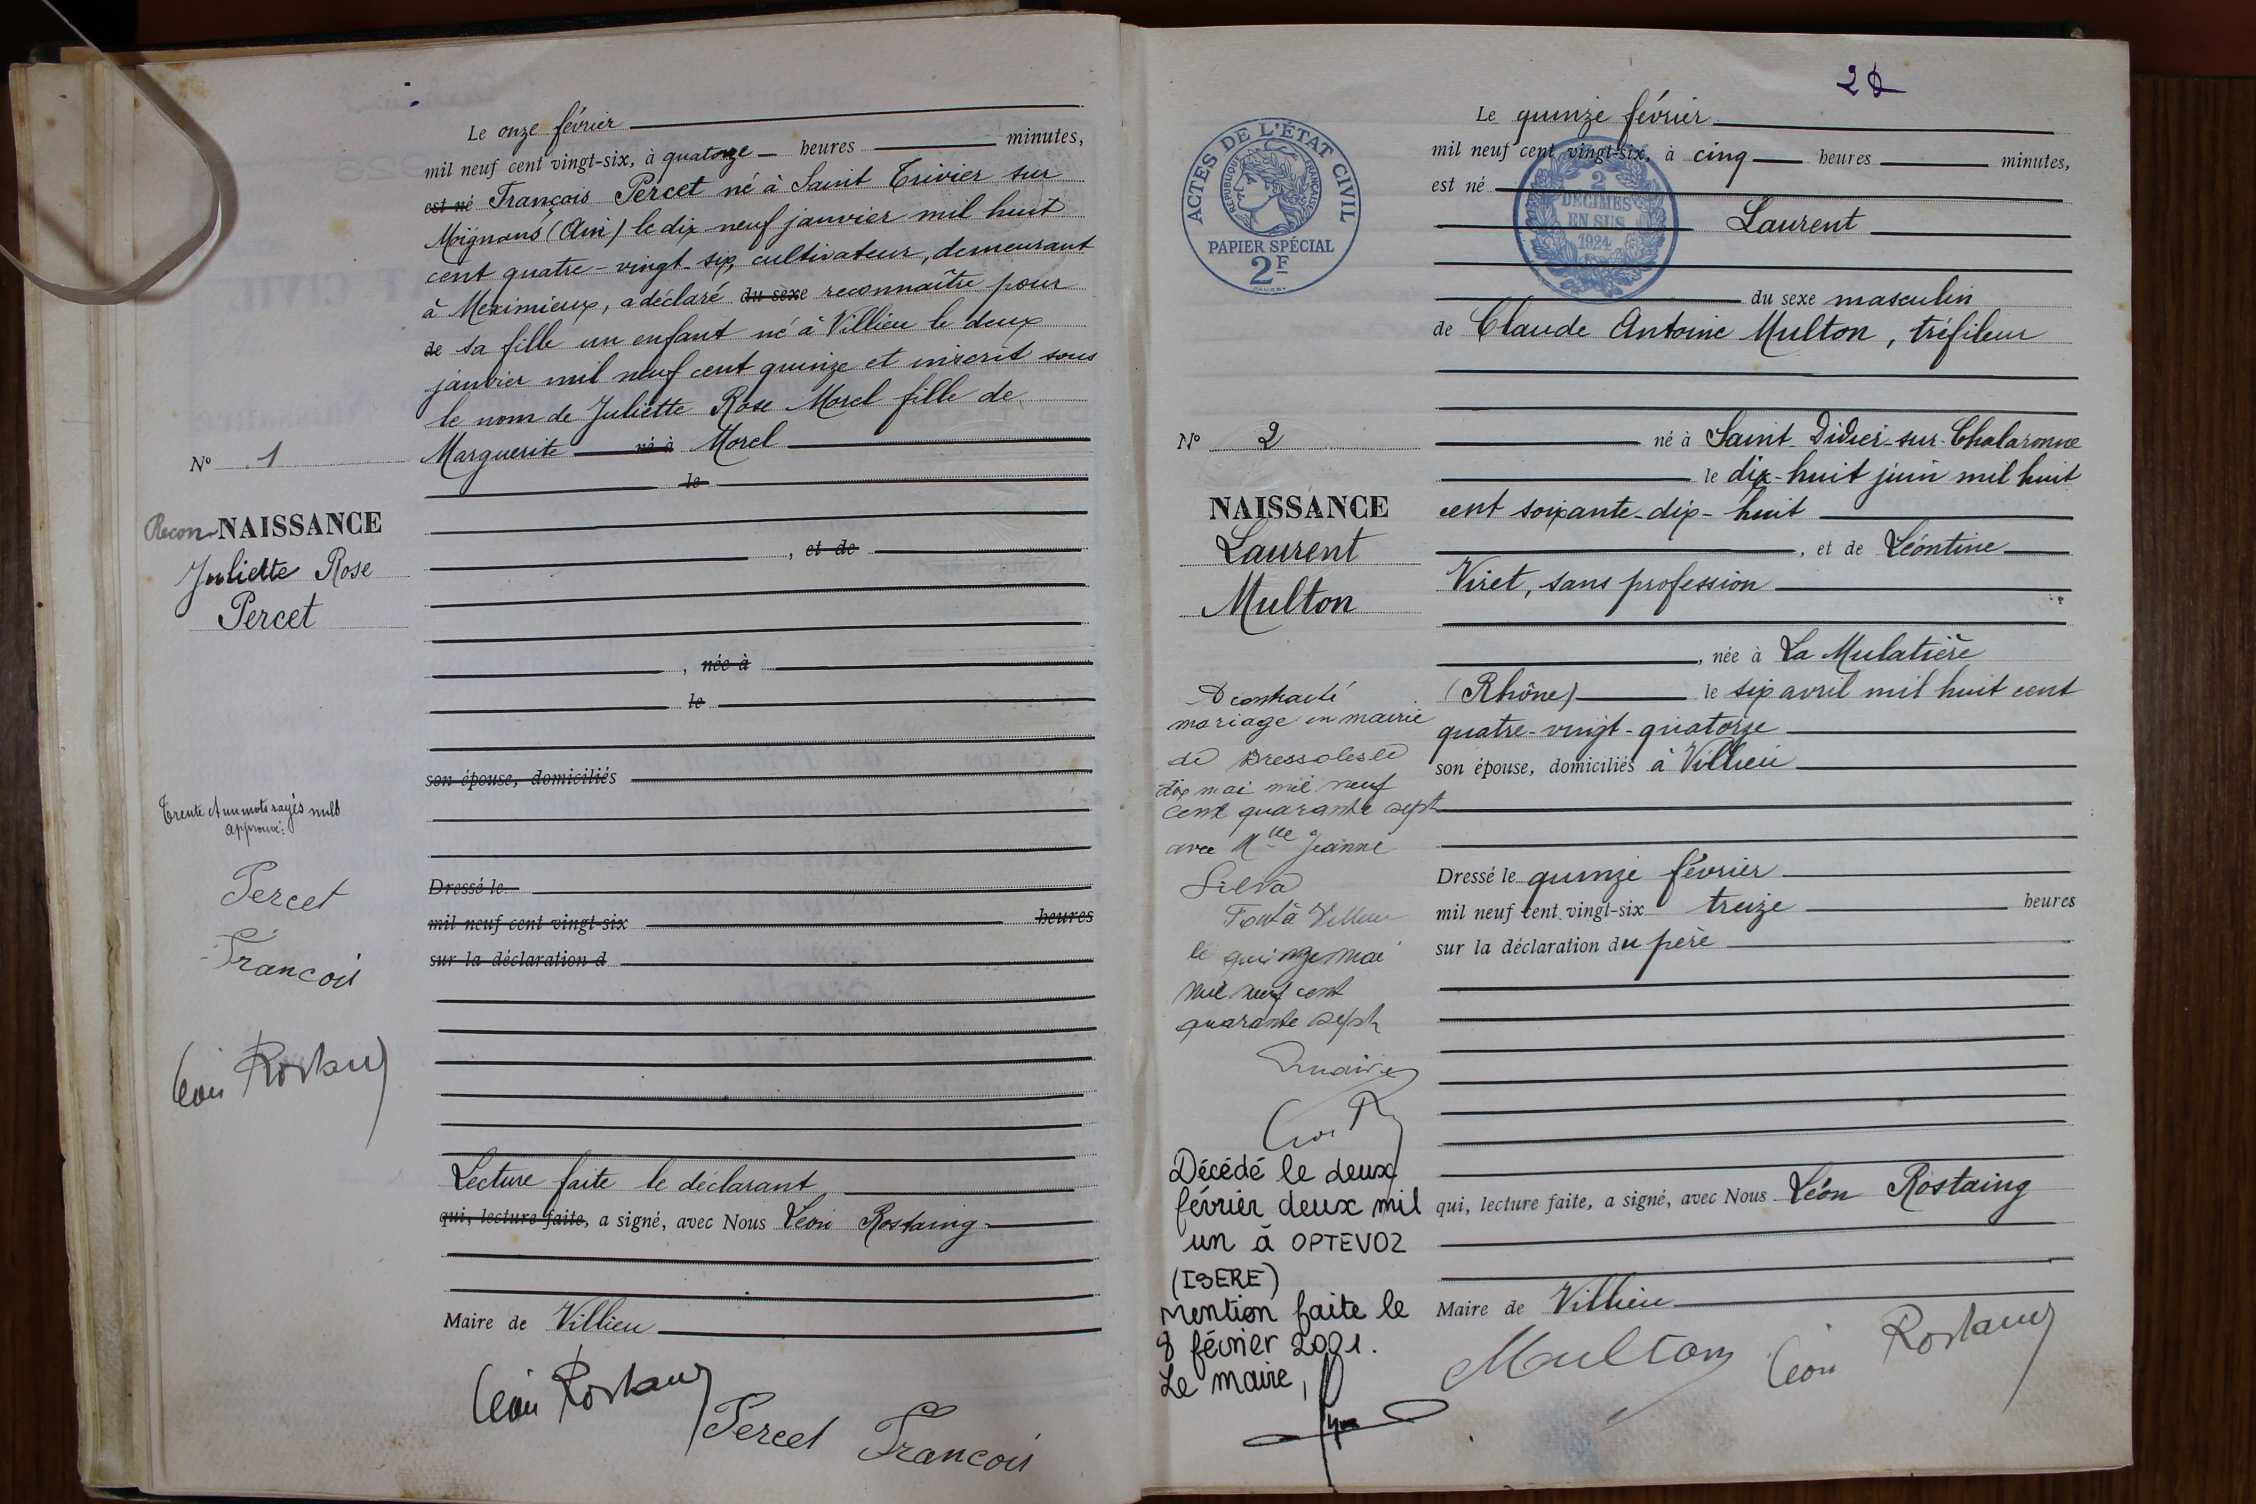 Le onze février
mil neuf cent vingt-six, à quatorze heures minutes,
est né François Percet né à Saint Trivier sur
Moignans (Ain) le dix neuf janvier mil huit
cent quatre-vingt-six, cultivateur, demeurant
à Meximieux, a déclaré du sexe reconnaître pour
de sa fille un enfant né à Villieu le deux
janvier mil neuf cent quinze et inscrit sous
le nom de Juliette Rose Morel fille de
Marguerite né à Morel
le
, et de
, née à
le
son épouse, domiciliés
Dressé le
mil neuf cent vingt-six heures
sur la déclaration d
Lecture faite le déclarant
qui, lecture faite, a signé, avec Nous Léon Rostaing
Maire de Villieu
Léon Rostaing
Percet François
N° 1
Recon-NAISSANCE
Juliette Rose
Percet
Trente et un mots rayés nuls
approuvé:
Percet
François
Léon Rostaing
2
ACTES DE L'ÉTAT CIVIL
RÉPUBLIQUE FRANÇAISE
PAPIER SPÉCIAL
2F
2
DÉCIMES
EN SUS
1924
Le quinze février
mil neuf cent vingt-six, à cinq heures minutes,
est né
Laurent
du sexe masculin
de Claude Antoine Multon, tréfileur
né à Saint-Didier-sur-Chalaronne
le dix-huit juin mil huit
cent soixante-dix-huit
, et de Léontine
Viret, sans profession
, née à La Mulatière
(Rhône) le six avril mil huit cent
quatre-vingt-quatorze
son épouse, domiciliés à Villieu
Dressé le quinze février
mil neuf cent vingt-six treize heures
sur la déclaration du père
qui, lecture faite, a signé, avec Nous Léon Rostaing
Maire de Villieu
Multon Léon Rostaing
N° 2
NAISSANCE
Laurent
Multon
A contracté
mariage en mairie
de Bressolles le
dix mai mil neuf
cent quarante sept
avec Mlle Jeanne
Silva
Fait à Villieu
le quinze mai
mil neuf cent
quarante sept
Le maire
Décédé le deux
février deux mil
un à OPTEVOZ
(ISERE)
Mention faite le
8 février 2001.
Le maire,